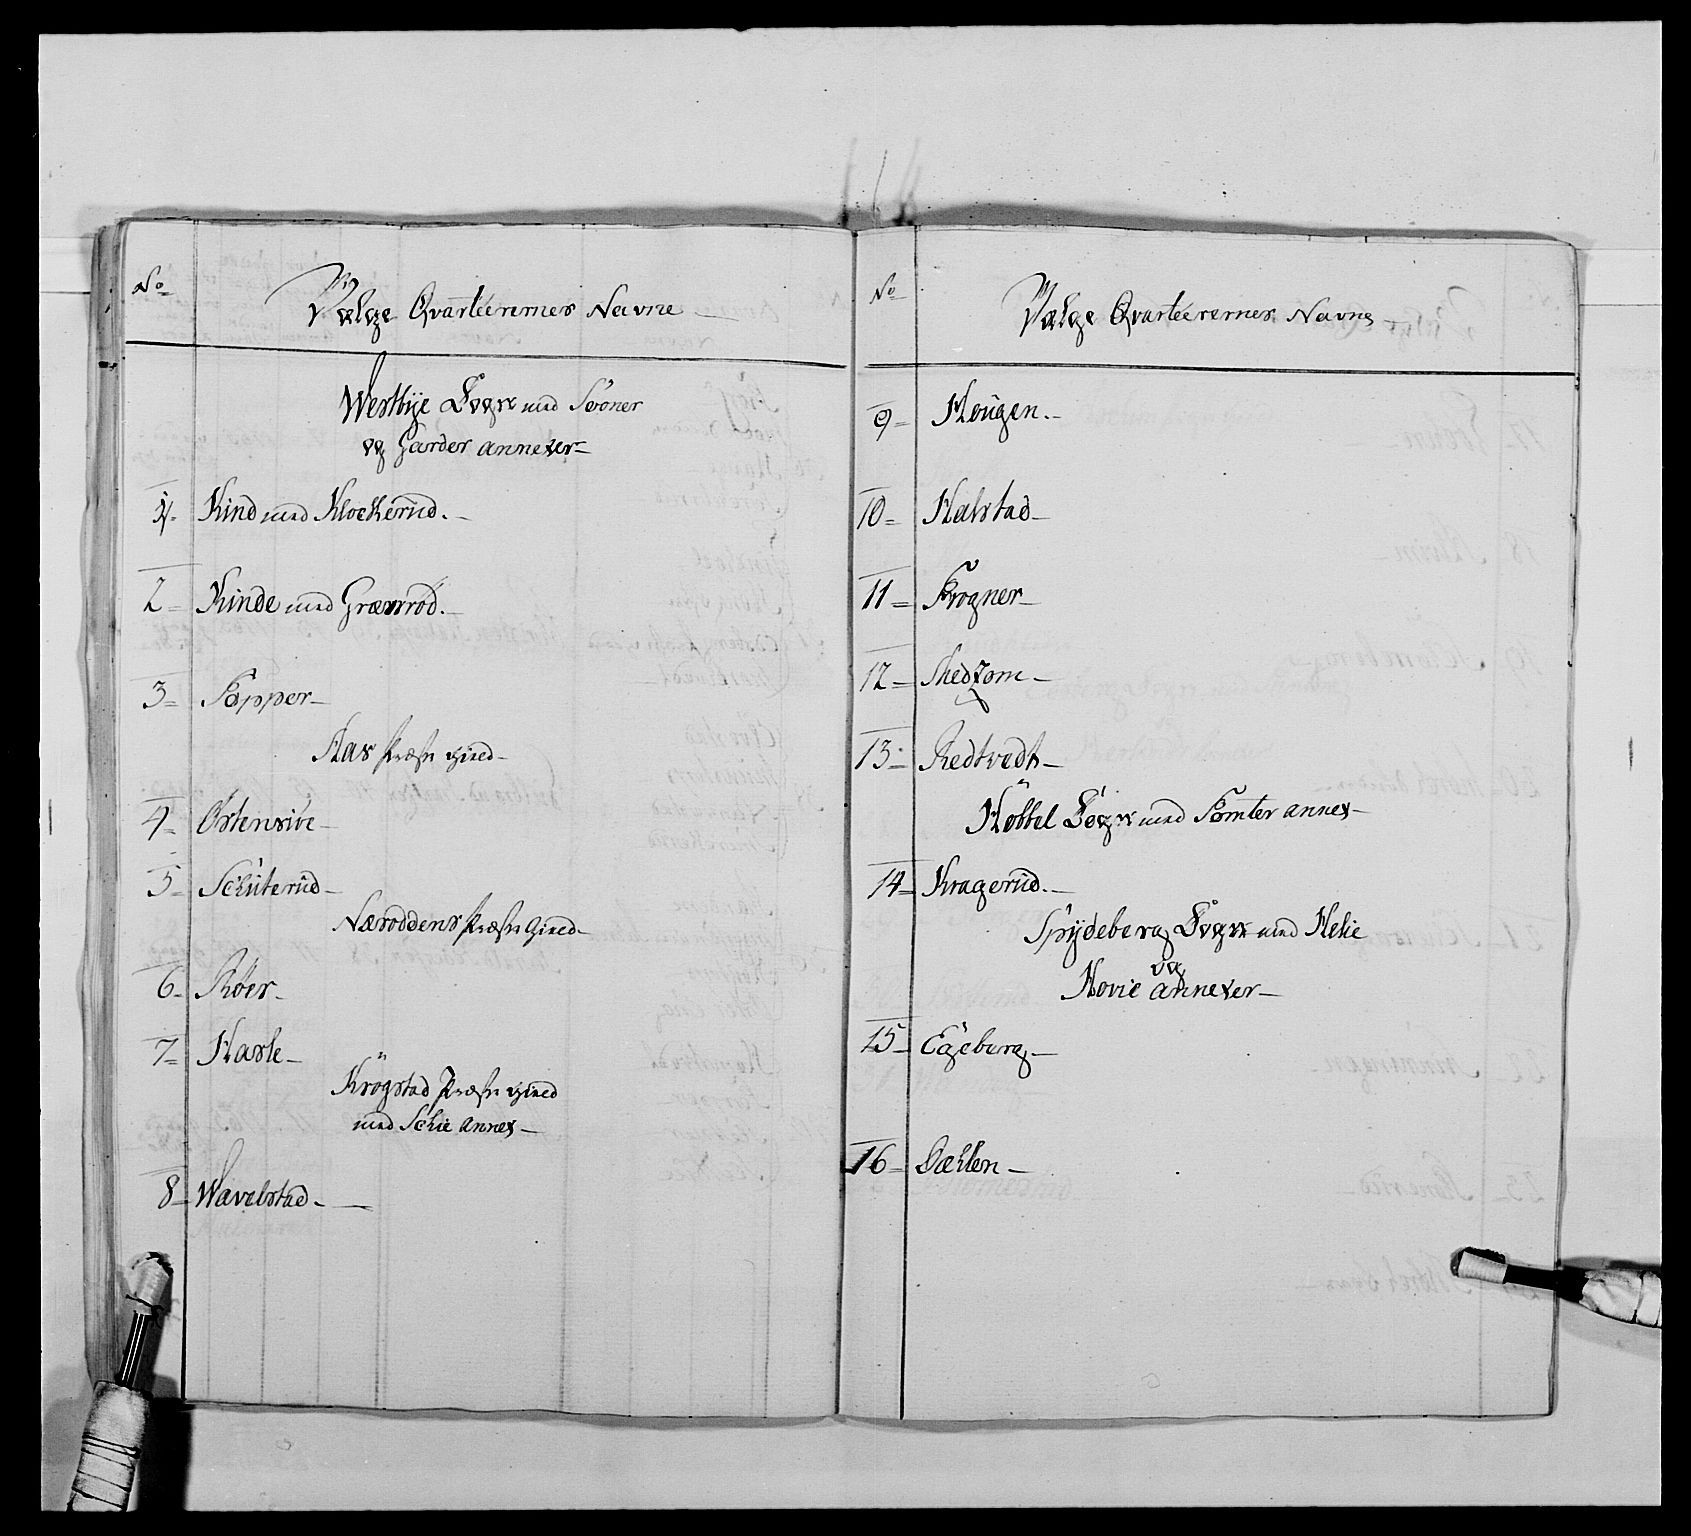 No
Vælge Qvarteerernes Navne
Westbye Sogn med Soner
og Garder annexer
1. Kind med Klockerud.
2 Kinde med Grævsrød.
3 Popper
Aas Præste gield
4 Østensive
5 Schuterud
Næsoddens Præste Gield
6 Røer
7 Hasle
Krogstad Præste gield
med Schie annex
8 Wævelstad
No
Vælge Qvarteerernes Navne
9 Hougen.
10 Halstad
11 Frogner
12
13 Redtvedt
Høbbel Sogn med Tomter annex
14 Kragerud.
Spydeberg Sogn med Helie
og
Hovie annexer
15 Egeberg
16 Dæhlen